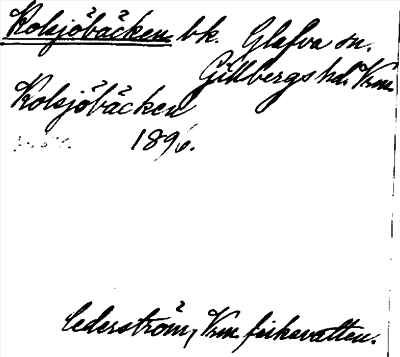 Kolsjöbäcken bk. Glafva sn.
Gillbergs hd. Vrm
Kolsjöbäcken
1896.
Cederström, Vrm fiskevatten.